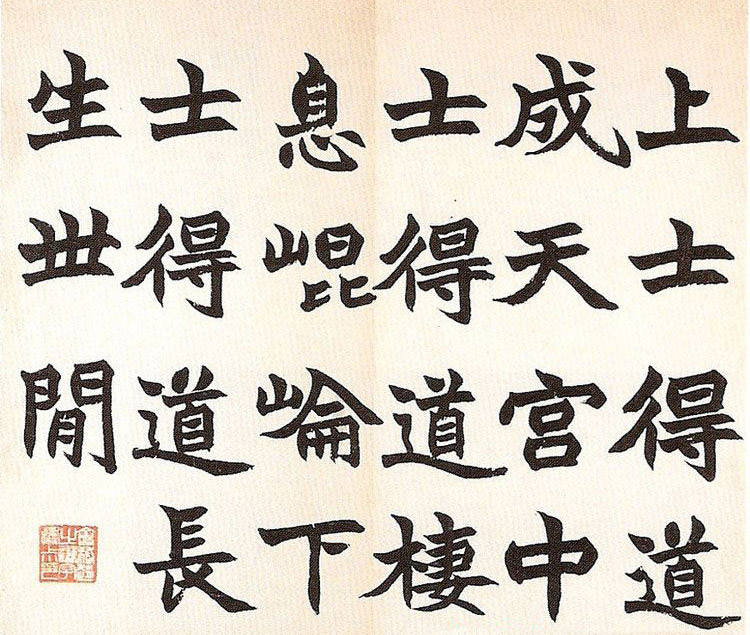 上士得道
成天宮中
士得道棲
息崐崘下
士得道長
生丗閒